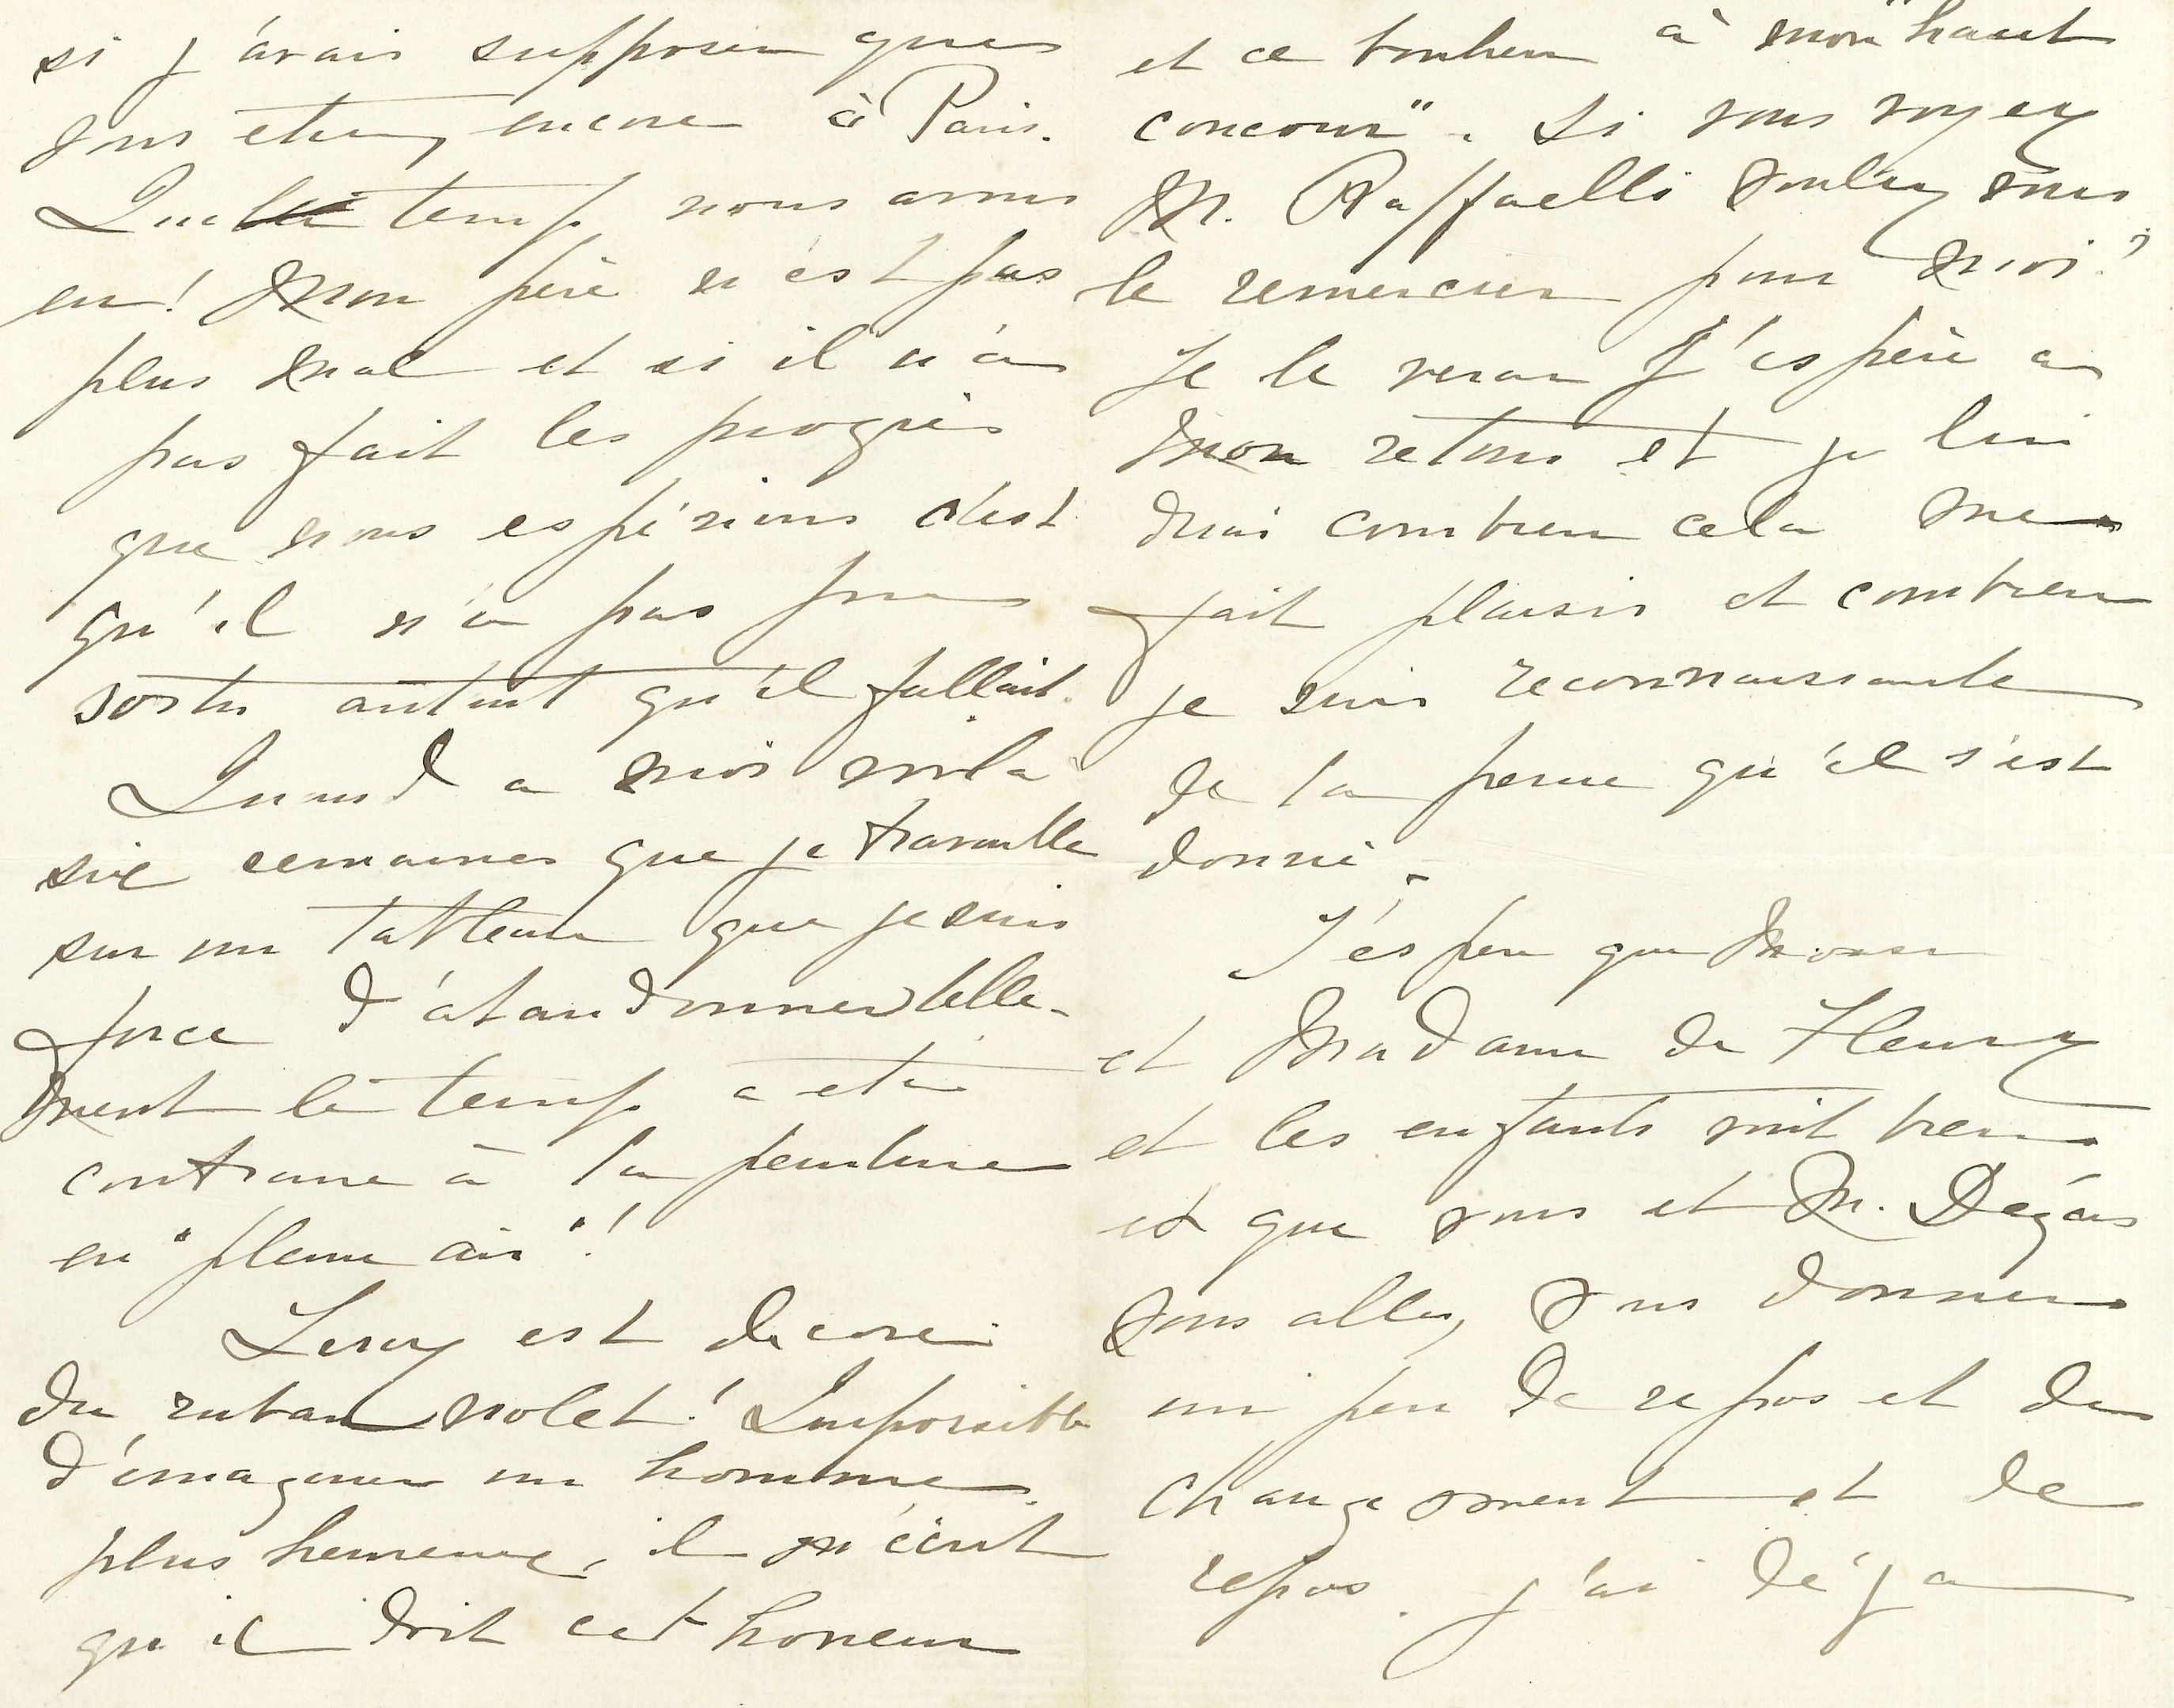 si j'avais supposer que
vous etiez encore à Paris.
Quel temps nous avons
eu! Mon père n'est pas
plus mal et si il n'a
pas fait les progrès
que nous espérions c'est
qu'il n'a pas pu
sortir autant qu'il fallait.
Quand a moi voila
six semaines que je travaille
sur un tableau que je suis
forcé d'abandonner telle-
ment le temps a été
contraire à la peinture
en "pleine air"!
Leroy est decoré
du ruban violet! Impossible
d'imaginer un homme
plus heureux, il m'écrit
qu'il doit cet honeur
et ce bonheur à mon "haut
concour". Si vous voyez
M. Raffaelli voulez vous
le remercier pour moi?
Je le verai j'espère a
mon retour et je lui
dirai combien cela me
fait plaisir et combien
je suis reconnaissante
de la peine qu'il s'est
donné.
J'éspere que Monsr
et Madame de Fleury
et les enfants sont bien
et que vous et M. Degas
vous allez vous donner
un peu de repos et du
changement et de
repos. j'ai déja